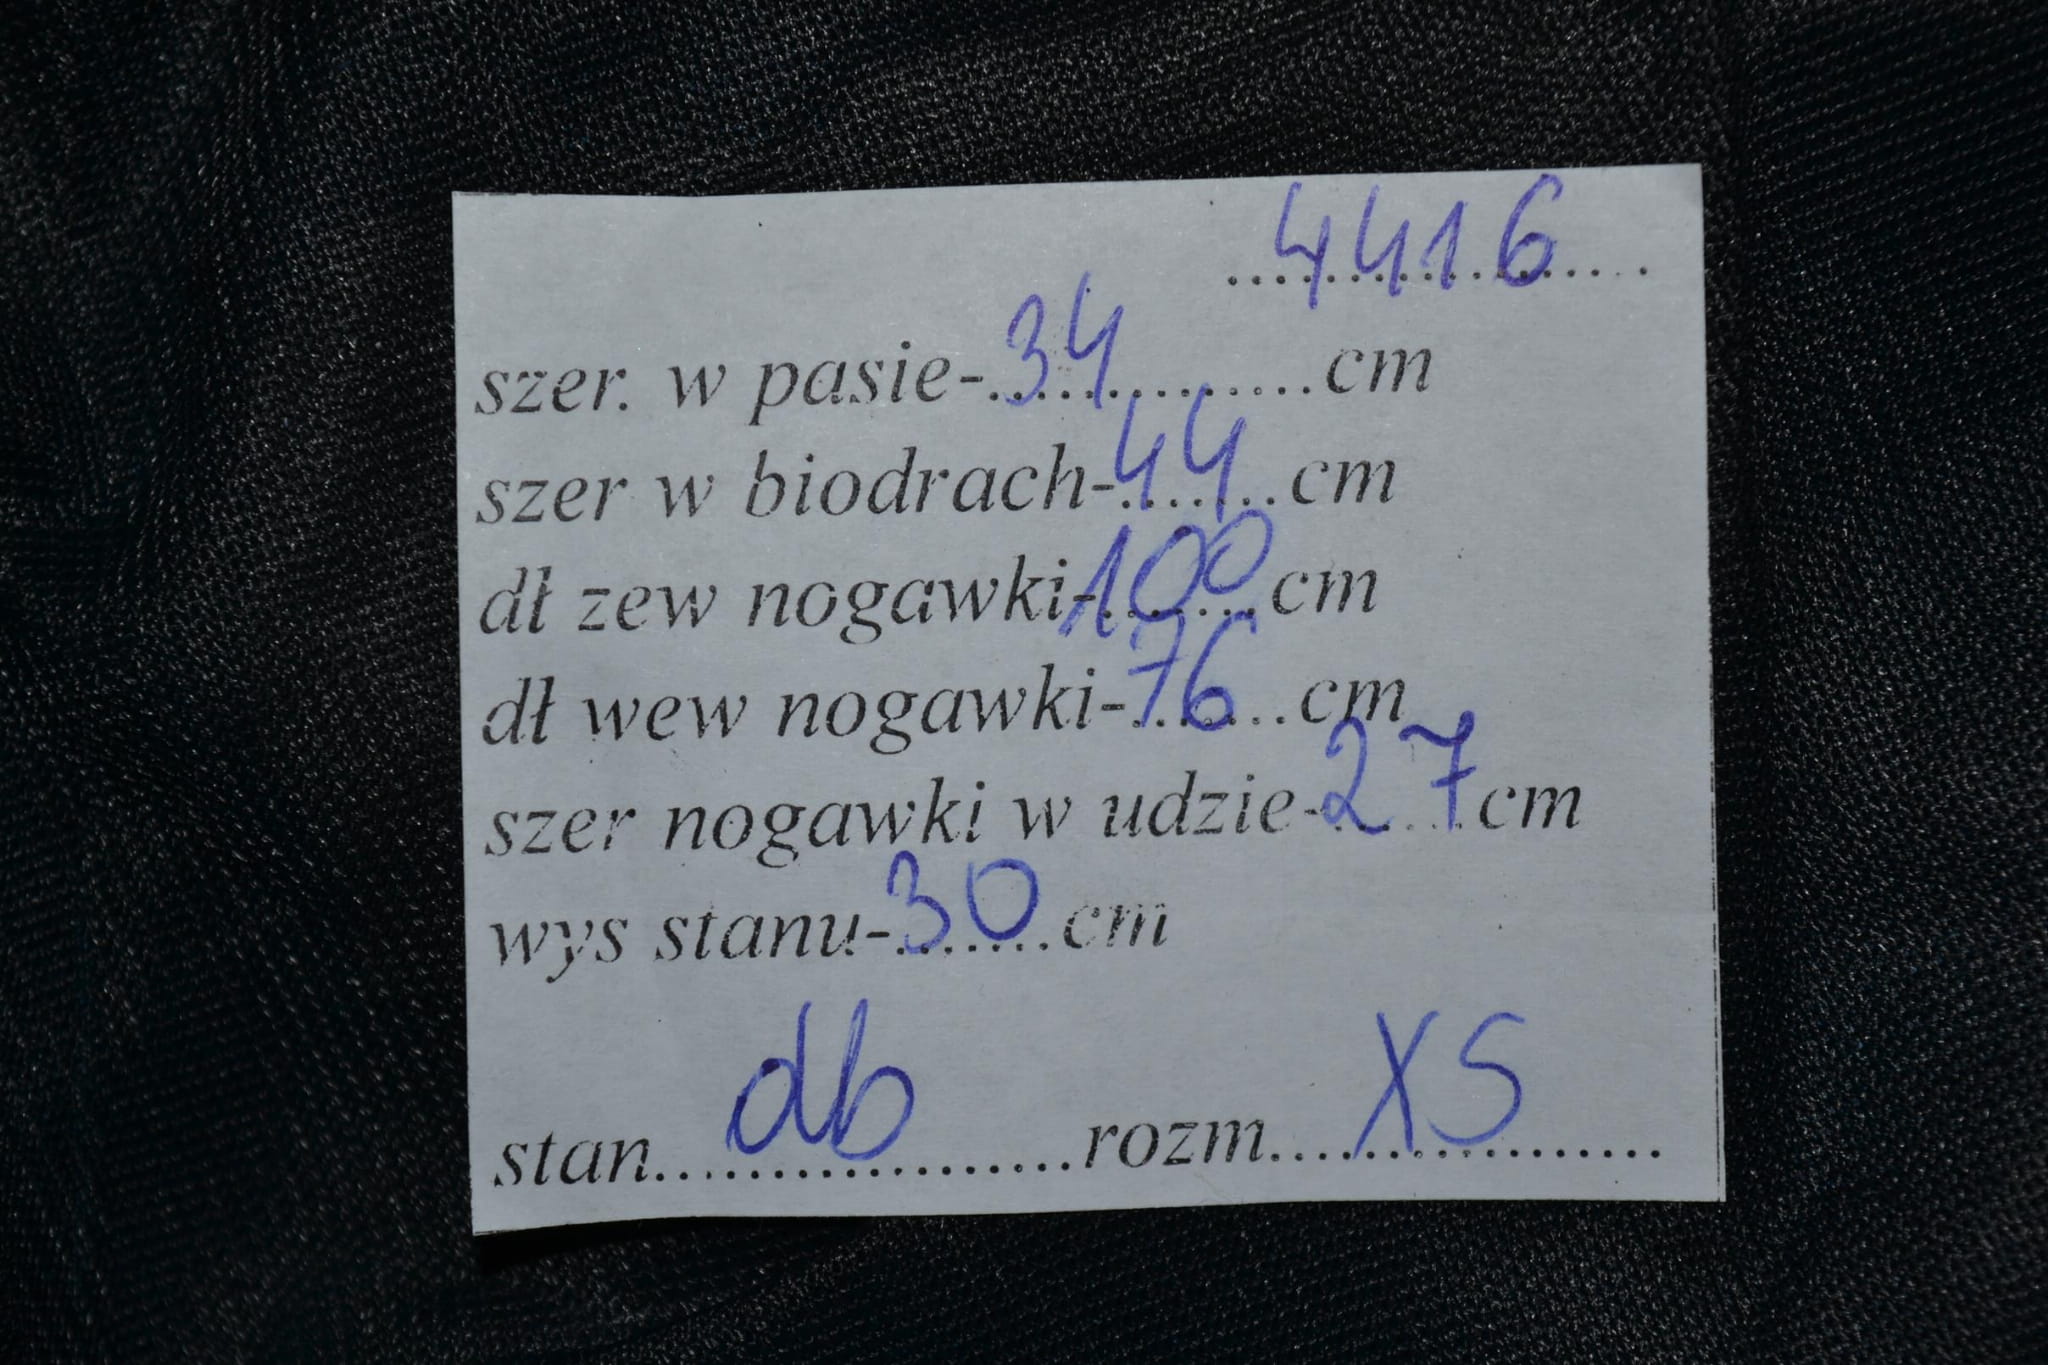 4416
szer. w pasie-34cm
szer w biodrach-44cm
dł zew nogawki-100cm
dł wew nogawki-76cm
szer nogawki w udzie-27cm
wys stanu-30cm
stan db rozm XS